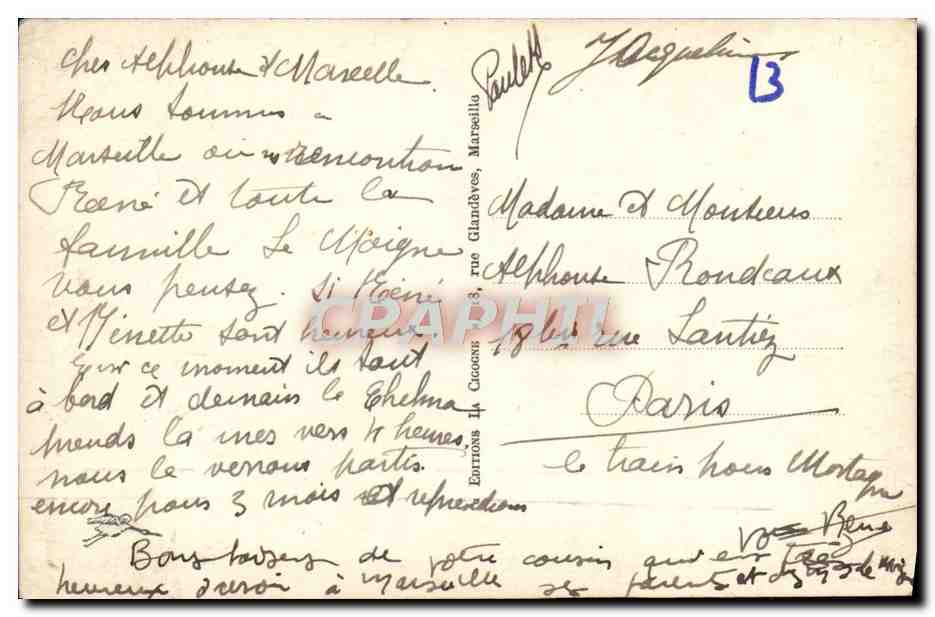 Cher Alphonse et Marcelle.
Nous sommes a
Marseille où ns remontron
René et toute la
famille Le Moigne
vous pensez. Si René
et Ninette sont heureux,
ce moment ils sont
à bord et demain le Thelma
prends la mer vers 4 heures,
nous le verrons partir
encore pour 3 mois et reprendrons
le train pour Mortagne
Bons baisers de votre cousin qui est
heureux d'revoir à Marseille ses parents et
EDITIONS LA CIGOGNE 8, rue Glandèves, Marseille
Paulette
Jacqueline
13
Madame et Monsieur
Alphonse Rondeaux
18 bis rue Lantiez
Paris
René
CARPHTI